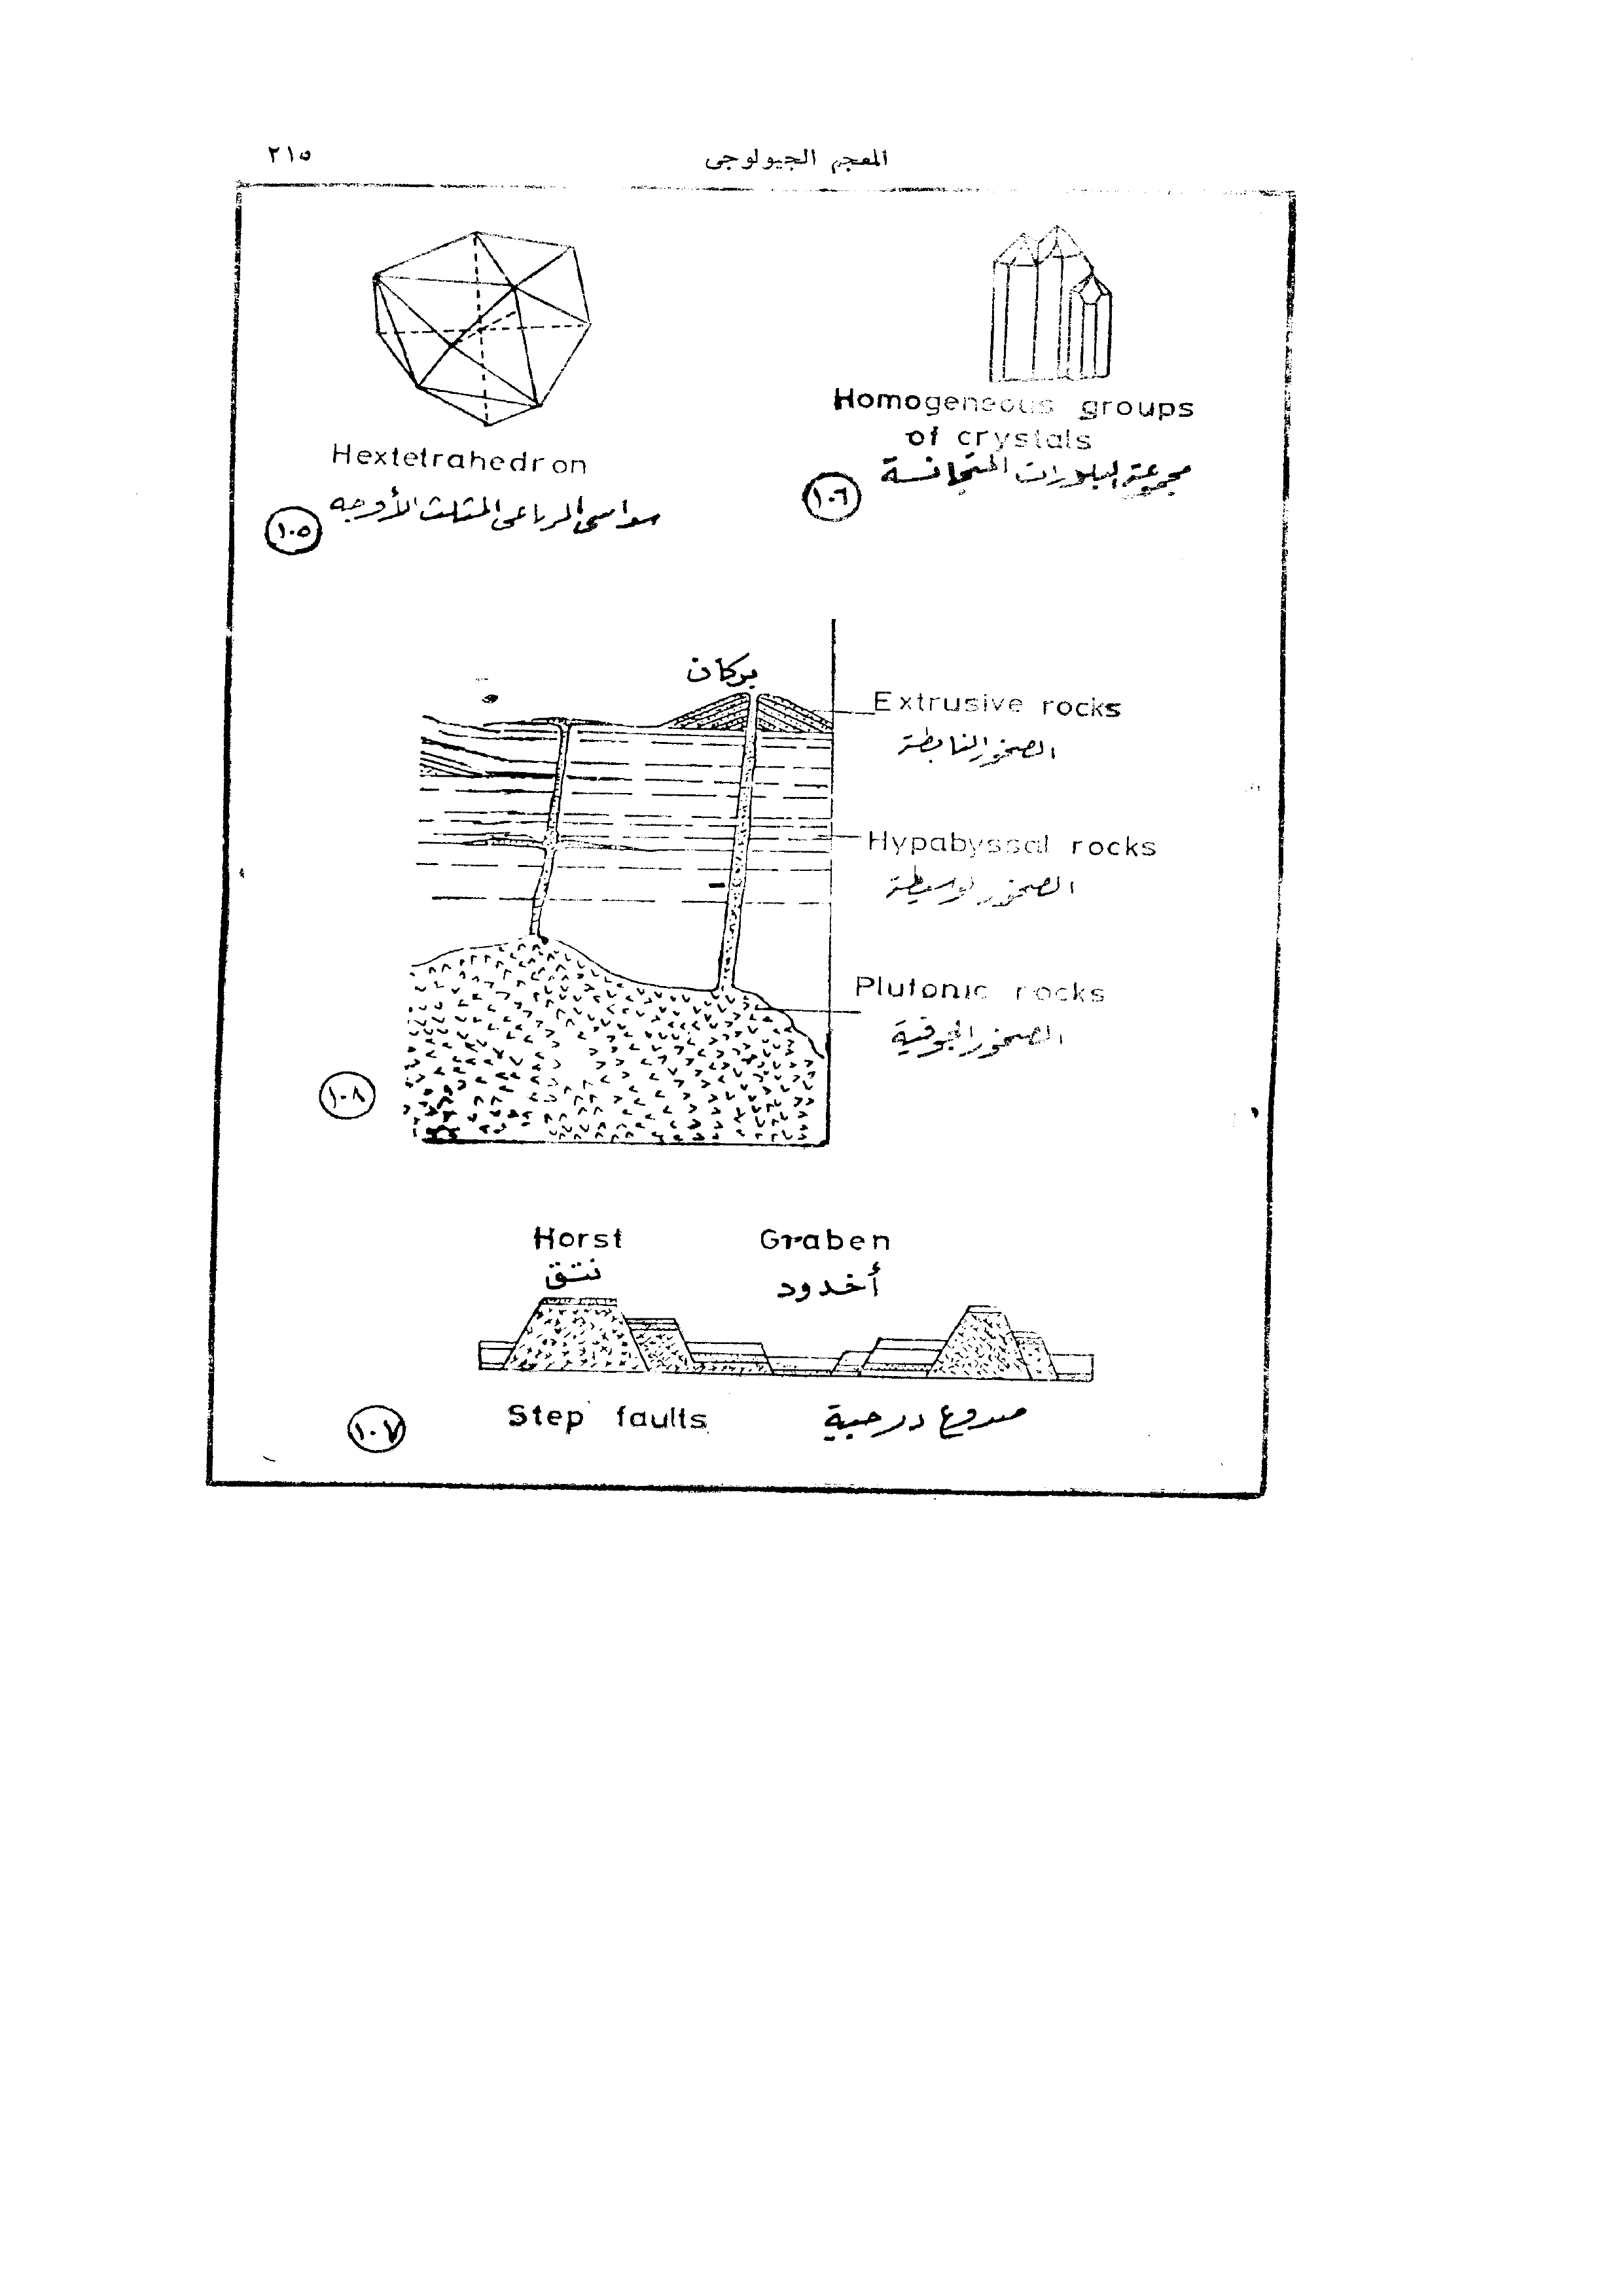 المعجم الجيولوجى
٢١٥
Hextetrahedron
سداسى الرباعى المثلث الأوجه
١٠٥
Homogeneous groups
of crystals
مجموعة البلورات المتجانسة
١٠٦
بركان
Extrusive rocks
الصخور
Hypabyssal rocks
الصخور الوسيطة
Plutonic rocks
الصخور الجوفية
١٠٨
Horst
نتق
Graben
أخدود
Step faults
صدوع درجية
١٠٧